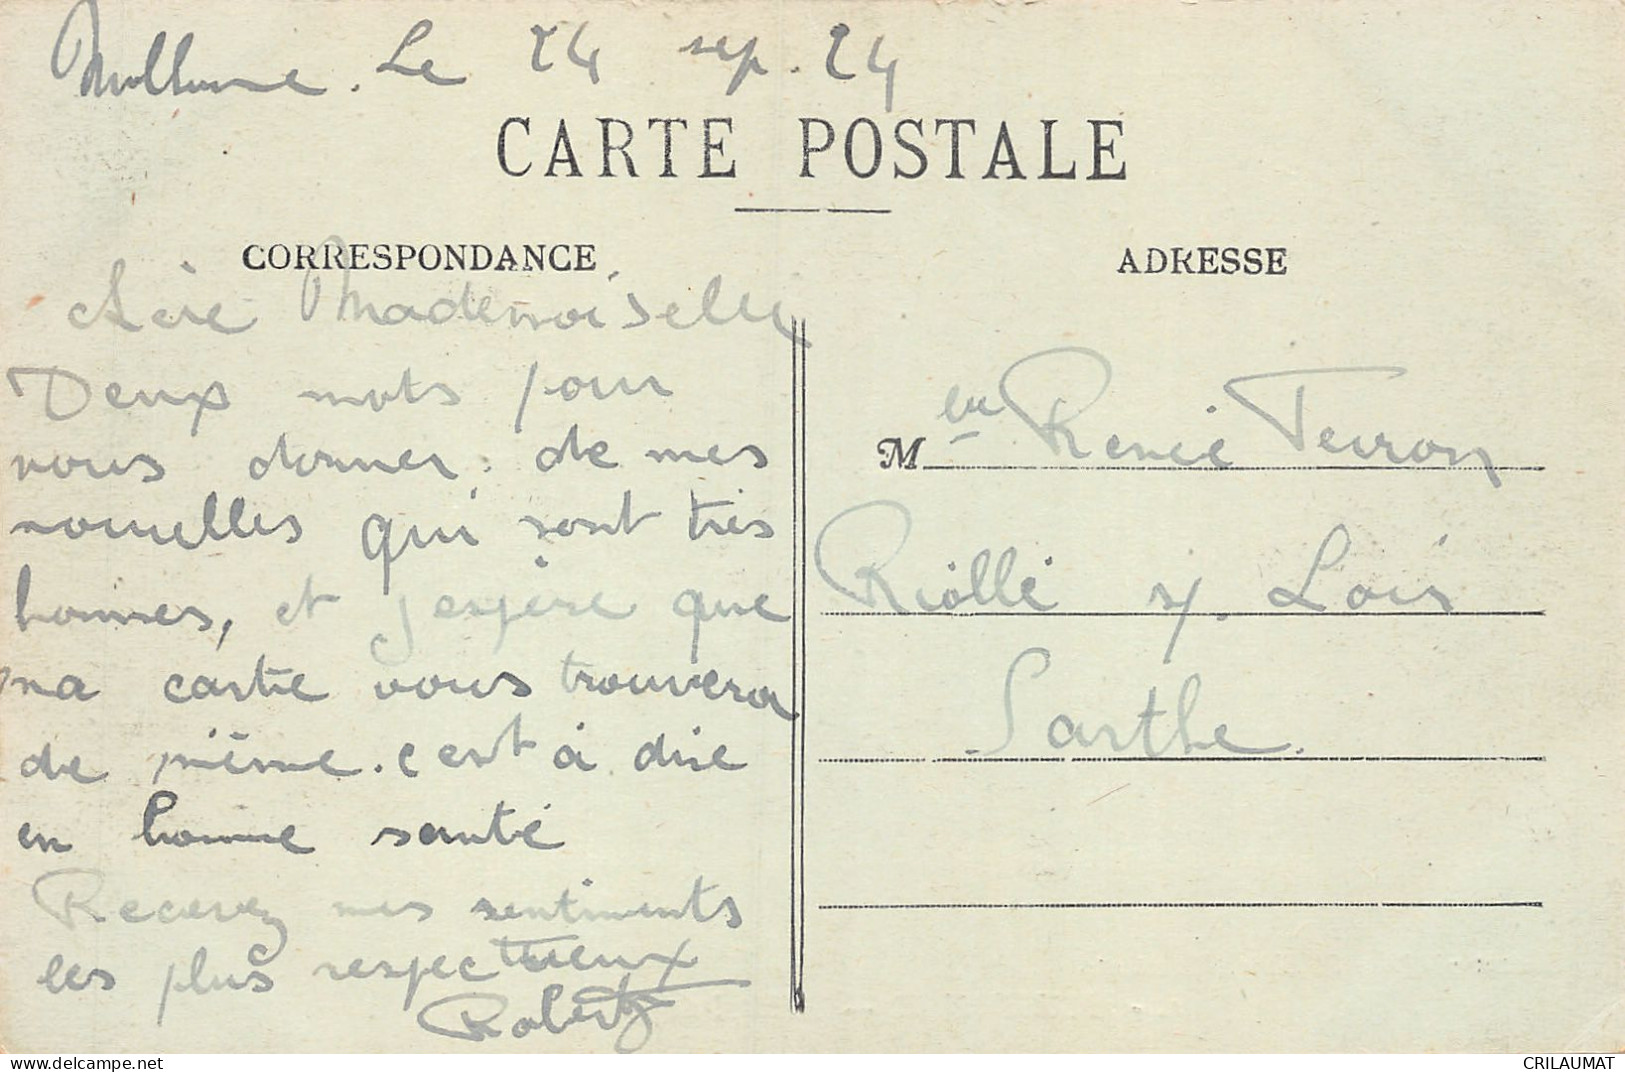 Mulhouse. Le 24 sep. 24
CARTE POSTALE
CORRESPONDANCE
ADRESSE
chère Mademoiselle
Deux mots pour
vous donner. de mes
nouvelles qui sont très
bonnes, et j'espère que
ma carte vous trouvera
de même. c'est à dire
en bonne santé
Recevez mes sentiments
les plus respectueux
Robert
M elle Renée Terron
Riollé s/. Loir
Sarthe.
delcampe.net
CRILAUMAT